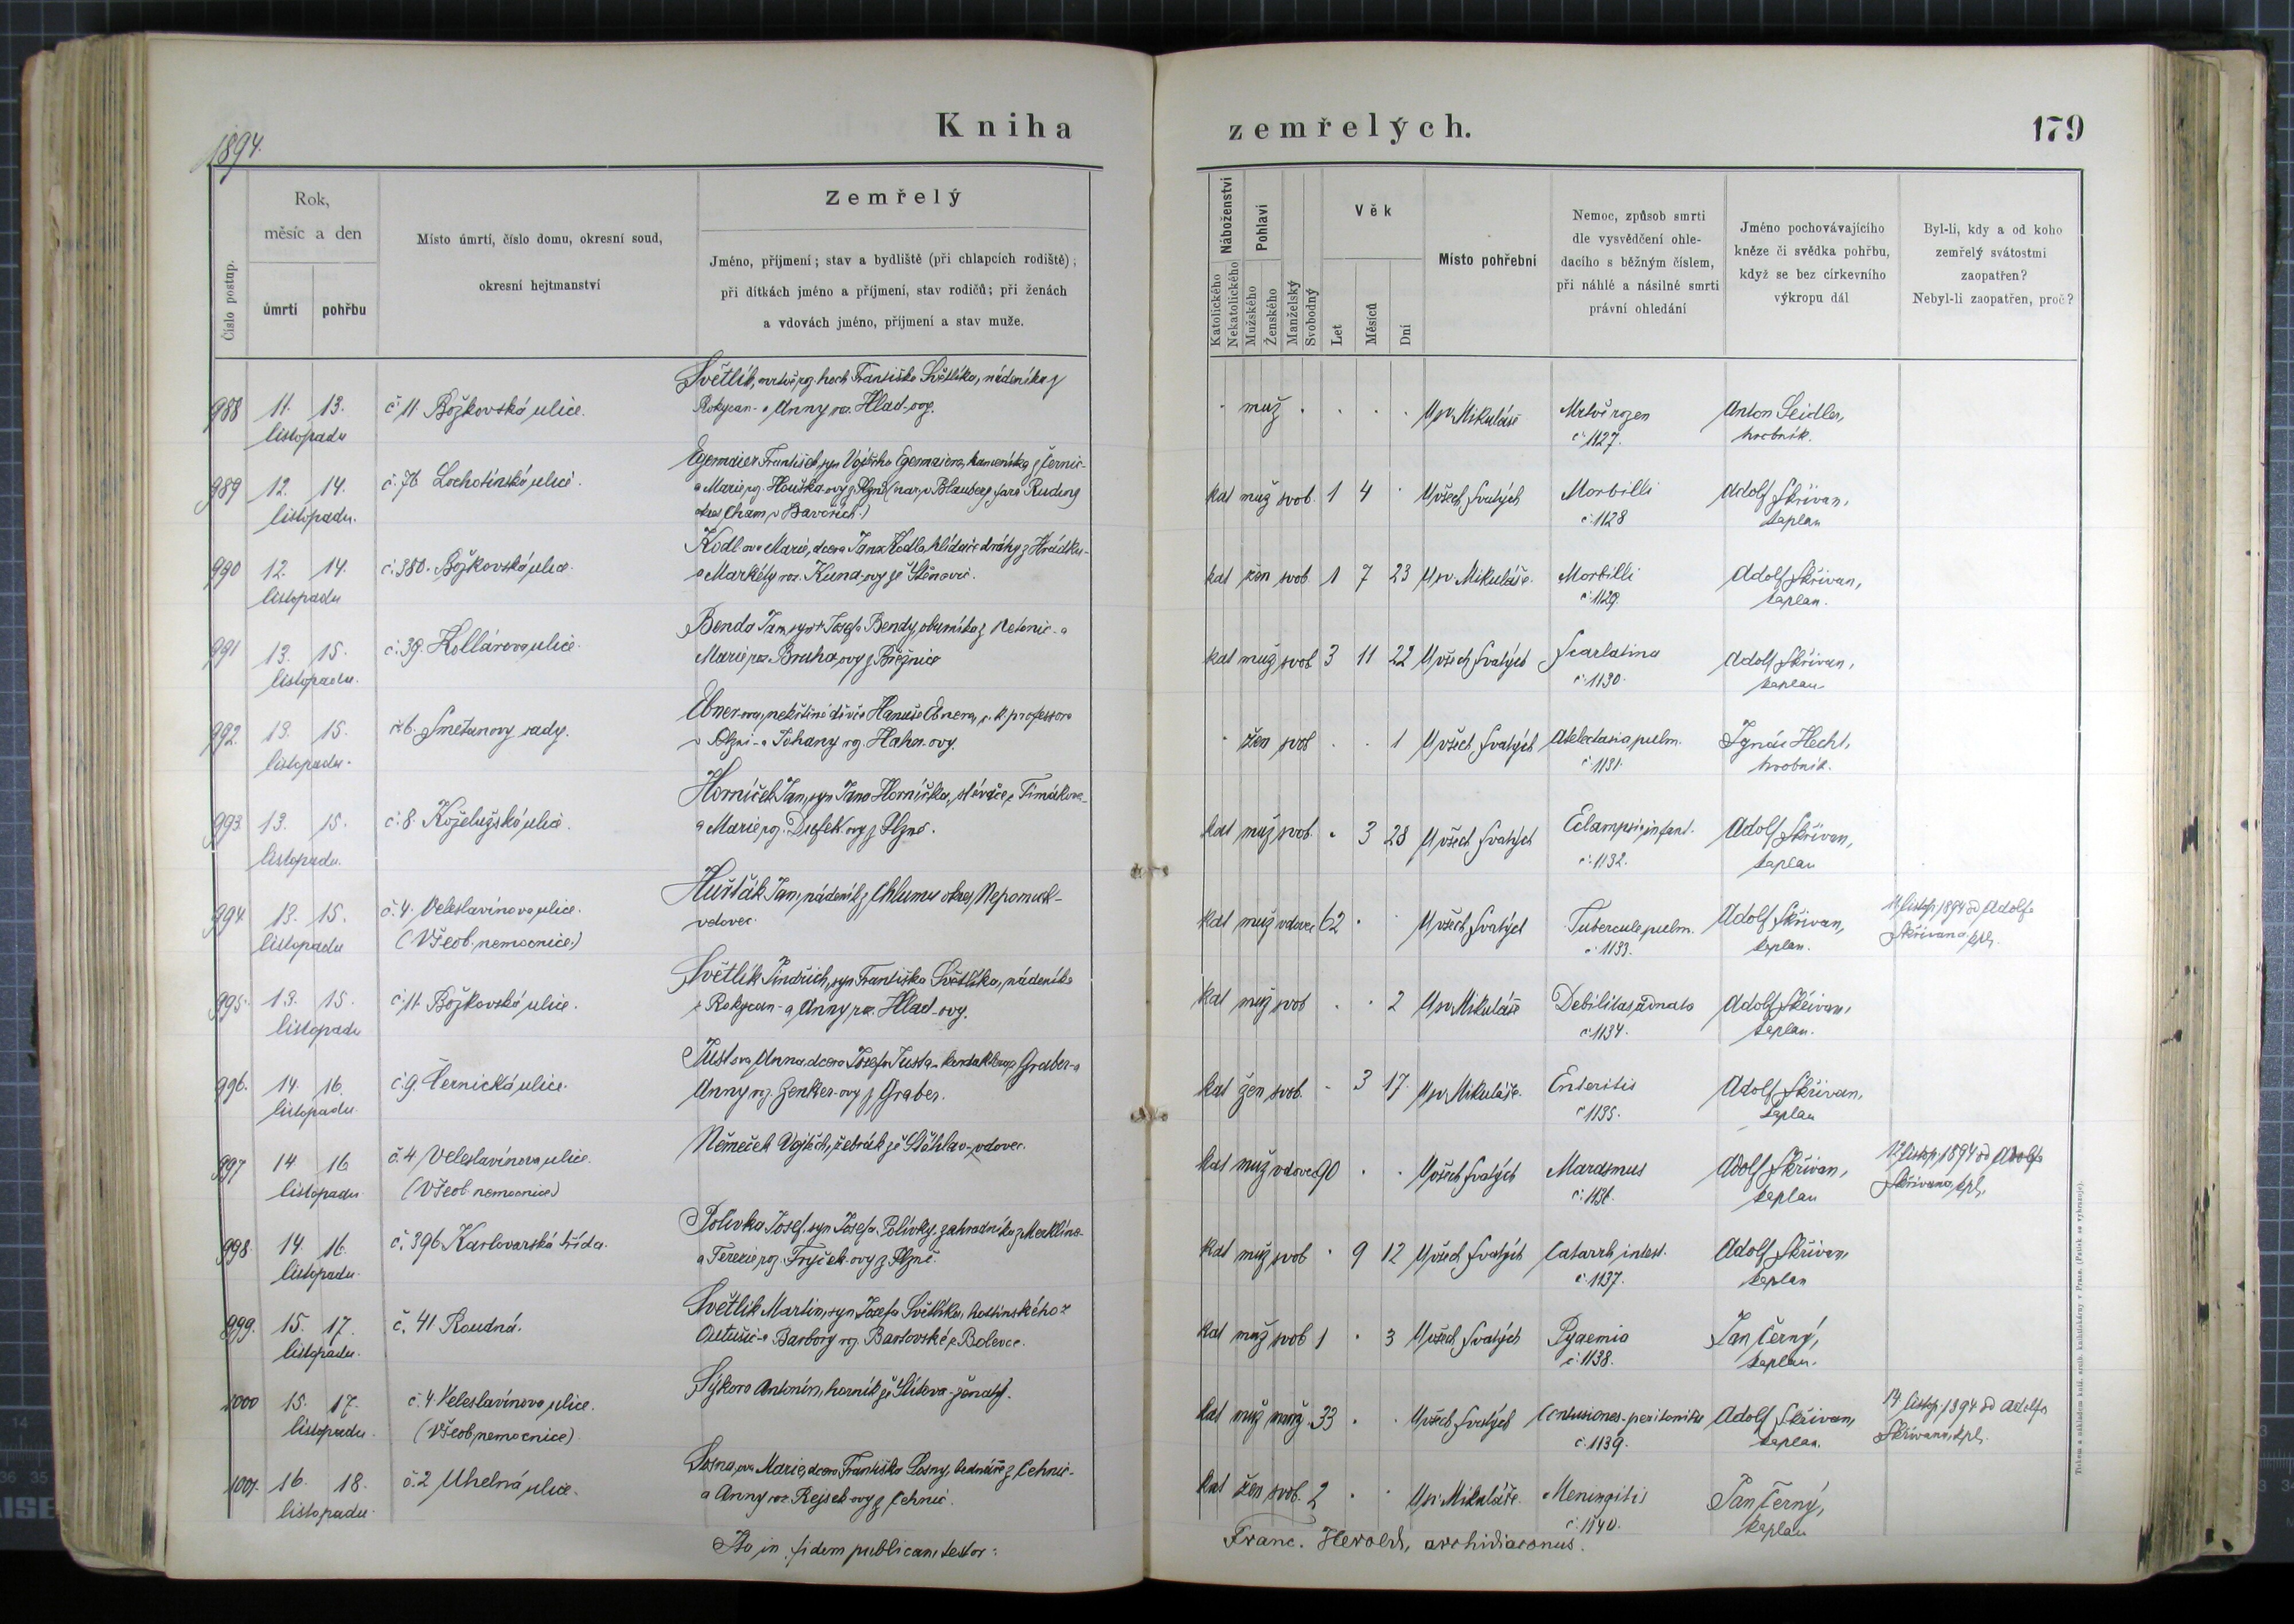 1894.
Kniha
zemřelých.
179
Číslo postup.
Rok,
měsíc a den
úmrtí
pohřbu
Místo úmrtí, číslo domu, okresní soud,
okresní hejtmanství
Zemřelý
Jméno, příjmení; stav a bydliště (při chlapcích rodiště);
při dítkách jméno a příjmení, stav rodičů; při ženách
a vdovách jméno, příjmení a stav muže.
Náboženství
Katolického
Nekatolického
Pohlaví
Mužského
Ženského
Manželský
Svobodný
Věk
Let
Měsíců
Dní
Místo pohřební
Nemoc, způsob smrti
dle vysvědčení ohle-
dacího s běžným číslem,
při náhlé a násilné smrti
právní ohledání
Jméno pochovávajícího
kněze či svědka pohřbu,
když se bez církevního
výkropu dál
Byl-li, kdy a od koho
zemřelý svátostmi
zaopatřen?
Nebyl-li zaopatřen, proč?
988 11. 13. č. 11. Božkovská ulice.
listopadu
Světlík, mrtvě roz. hoch Františka Světlíka, nádeníka z
Rokycan - a Anny roz. Hlad-ovy.
muž U sv. Mikuláše Mrtvě rozen Anton Seidler,
č. 1127. hrobník.
989 12. 14. č. 76 Lochotínská ulice.
listopadu.
Egermaier František, syn Vojtěcha Egermaiera, kameníka z Černic-
a Marie roz. Houška-ovy z Plzně (nar. v Blauberg fara Ruding
okres Cham v Bavořích.)
kat muž svob. 1 4 U všech Svatých Morbilli Adolf Skřivan,
č. 1128 kaplan
990 12. 14. č. 380. Božkovská ulice.
listopadu
Kodl-ova Marie, dcera Jana Kodla, hlídače dráhy z Hrádku-
a Markéty roz. Kuna-ovy ze Štěnovic.
kat žen svob. 1 7 23 U sv. Mikuláše. Morbilli Adolf Skřivan,
č. 1129. kaplan.
991 13. 15. č. 39. Kollárova ulice.
listopadu.
Benda Jan, syn † Josefa Bendy, obuvníka z Netonic - a
Marie roz. Bruha-ovy z Březnice
kat muž svob 3 11 22 U všech Svatých Scarlatina Adolf Skřivan,
č. 1130. kaplan.
992. 13. 15. č. 6. Smetanovy sady.
listopadu.
Ebner-ova, nekřtěné děvče Hanuše Ebnera, c. k. professora
v Plzni - a Johany roz. Hahn-ovy.
žen svob 1 U všech Svatých Atelectasia pulm. Ignác Hecht,
č. 1131. hrobník.
993 13. 15. č. 8. Koželužská ulice.
listopadu.
Horníček Jan, syn Jana Horníčka, slévače z Timákova-
a Marie roz. Dufek-ovy z Plzně.
kat muž svob. 3 28 U všech Svatých Eclampsia infant. Adolf Skřivan,
č. 1132. kaplan
994 13. 15. č. 4. Veleslavínova ulice.
listopadu (Všeob. nemocnice.)
Hušták Jan, nádeník z Chlumu okres Nepomuk-
vdovec.
kat muž vdovec 62 U všech Svatých Tubercule pulm. Adolf Skřivan, listop. 1894 od Adolfa
č. 1133. kaplan. Skřivana, kpl.
995. 13. 15. č. 11. Božkovská ulice.
listopadu
Světlík Jindřich, syn Františka Světlíka, nádeníka
z Rokycan - a Anny roz. Hlad-ovy.
kat muž svob 2 U sv. Mikuláše Debilitas adnata Adolf Skřivan,
č. 1134. kaplan.
996. 14. 16. č. 9. Černická ulice.
listopadu.
Just-ova Anna, dcera Josefa Justa - z Graber - a
Anny roz. Zenker-ovy z Graber.
kat žen svob. 3 17. U sv. Mikuláše. Enteritis Adolf Skřivan,
č. 1135. kaplan
997 14 16 č. 4 Veleslavínova ulice.
listopadu. (Všeob. nemocnice)
Němeček Vojtěch, žebrák ze Štěhlav - vdovec.
kat muž vdovec 90 U všech Svatých Marasmus Adolf Skřivan, listop. 1894 od Adolfa
č. 1136. kaplan Skřivana, kpl.
998. 14. 16. č. 396 Karlovarská třída.
listopadu.
Polívka Josef, syn Josefa Polívky, zahradníka z Merklína-
a Terezie roz. Fryček-ovy z Plzně.
kat muž svob 9 12 U všech Svatých Catarrh intest. Adolf Skřivan
č. 1137. kaplan
999. 15. 17. č. 41 Roudná.
listopadu.
Světlík Martin, syn Josefa Světlíka, hostinského z
Outušic - a Barbory roz. Bartovské z Bolevce.
kat muž svob 1 3 U všech Svatých Pyaemia Jan Černý,
č. 1138. kaplan.
1000 15. 17. č. 4. Veleslavínova ulice.
listopadu. (Všeob. nemocnice)
Sýkora Antonín, horník ze Lítova - ženatý.
kat muž manž. 33 U všech Svatých Contusiones - peritonitis Adolf Skřivan, 14. listop. 1894 od Adolfa
č. 1139. kaplan. Skřivana, kpl.
1001. 16. 18. č. 2 Uhelná ulice.
listopadu.
Sosna-ova Marie, dcera Františka Sosny, bednáře z Čehnic-
a Anny roz. Rejsek-ovy z Čehnic.
kat žen svob. 2 U sv. Mikuláše. Meningitis Jan Černý,
č. 1140. kaplan
Ita in fidem publicam testor:
Franc. Herold, archidiaconus.